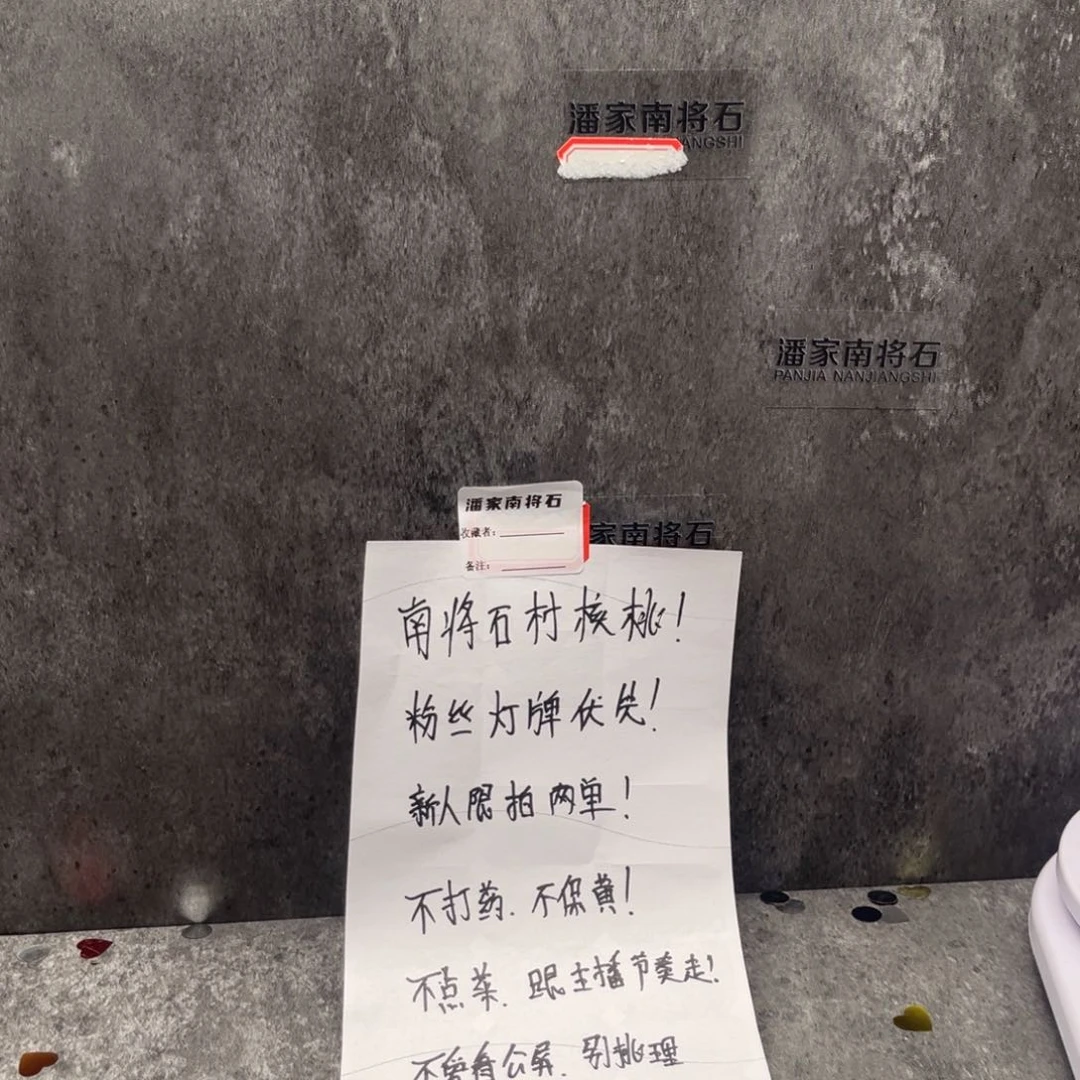 潘家南将石
ANGSHI
潘家南将石
PANJIA NANJIANGSHI
潘家南将石
收藏者：
备注：
家南将石
南将石村核桃！
粉丝灯牌优先！
新人限拍两单！
不打药．不保黄！
不点菜．跟主播节奏走！
不爱看公屏．别挑理